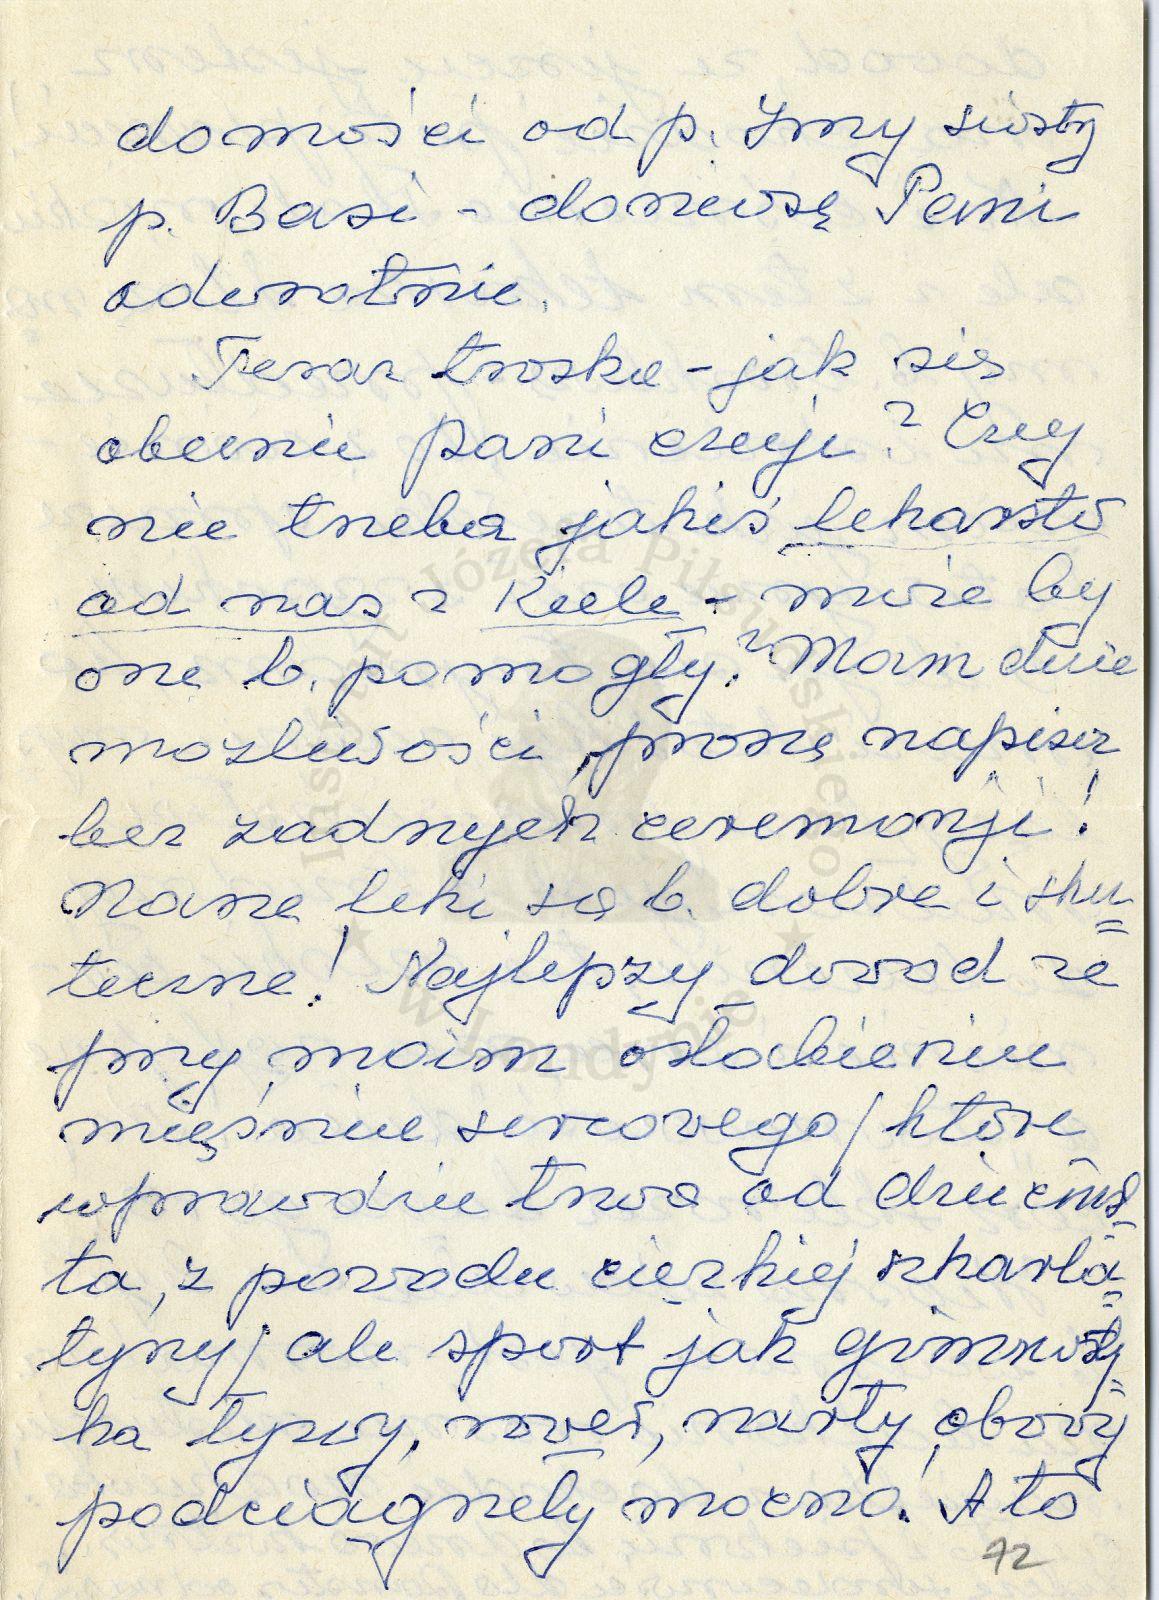 domości od p. Irmy siostry
p. Basi - doniosę Pani
odwrotnie.
Teraz troskę - jak się
obecnie Pani czuje? Czy
nie trzeba jakiś lekarstw
od nas z Kielc - może by
one b. pomogły? Mam duże
możliwości, proszę napisz
bez żadnych ceremonji!
Nasze leki są b. dobre i sku=
teczne! Najlepszy dowód że
przy moim osłabieniu
mięśniu sercowego/które
wprawdzie trwa od dziecińs-
ta, z powodu ciężkiej szkarla=
tyny/ale sport jak gimnasty=
ka łyżwy, rower, narty, obozy
podciągnęły mocno! A to
72
Instytut Józefa Piłsudskiego
w Londynie